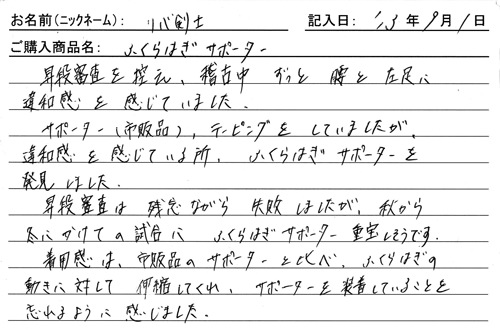 お名前(ニックネーム): リバ剣士 記入日: '13年9月1日
ご購入商品名: ふくらはぎサポーター
昇段審査を控え、稽古中 ずっと 腰と左足に
違和感を感じていました。
サポーター(市販品)、テーピングをしていましたが、
違和感を感じている所、ふくらはぎサポーターを
発見しました。
昇段審査は残念ながら失敗しましたが、秋から
冬にかけての試合にふくらはぎサポーター重宝しそうです。
着用感は、市販品のサポーターと比べ、ふくらはぎの
動きに対して伸縮してくれ、サポーターを装着していることを
忘れるように感じました。